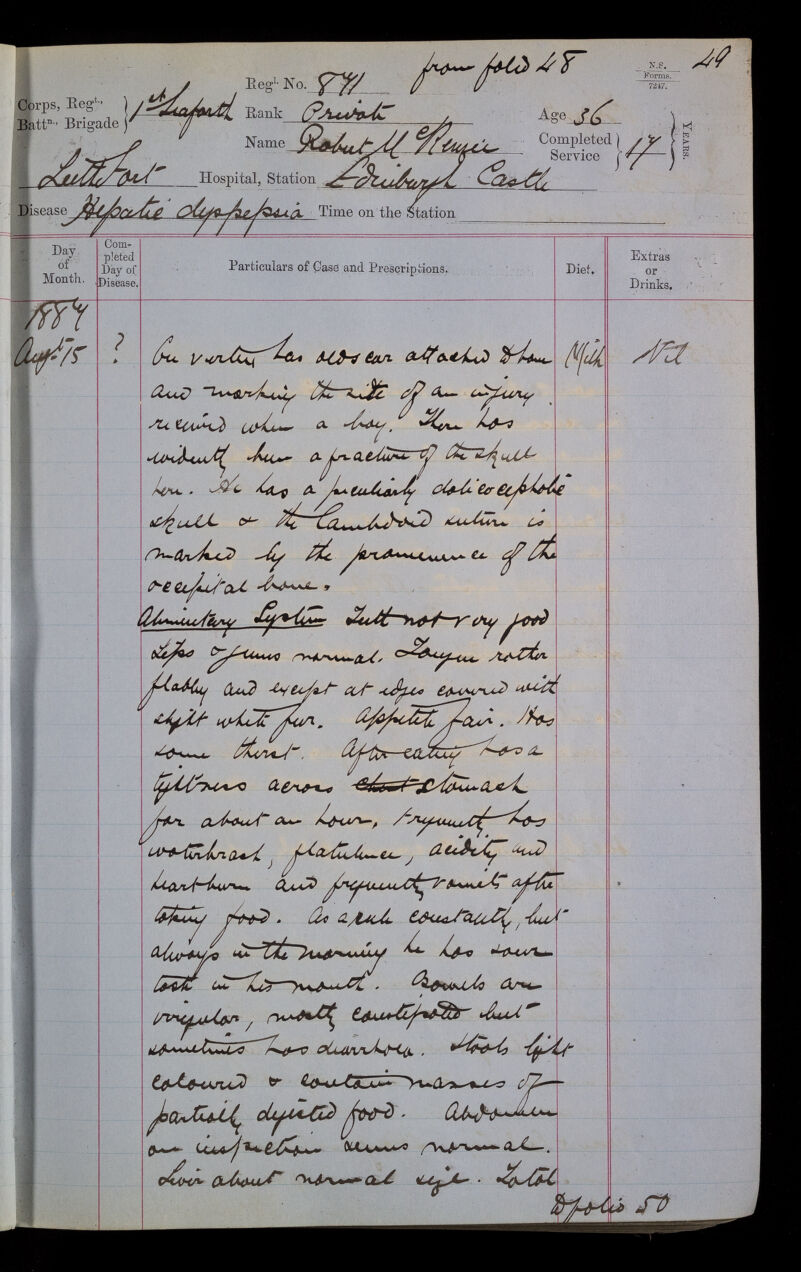 from folio 48
49
N.S.
Forms.
7247.
Regl. No. 871
Corps, Regt.,
Battn., Brigade } 1st Seaforth
Rank Private
Age 36
Name Robert McKenzie
Completed
Service } 17 } YEARS.
Leith Fort Hospital, Station Edinburgh Castle
Disease Hepatic dyspepsia Time on the Station
Day
of
Month.
Com-
pleted
Day of
Disease.
Particulars of Case and Prescriptions.
Diet.
Extras
or
Drinks.
1887
Augt 15 ? On vertex has old scar attached to bone Milk Nil
and marking the site of an injury
received when a boy. There has
evidently been a fracture of the skull
here. He has a peculiarly dolicocephalic
skull & the lambdoid suture is
marked by the prominence of the
occipital bone.
Alimentary System Teeth not very good
Lips & gums normal. Tongue rather
flabby and except at edges covered with
slight white fur. Appetite fair. Has
some thirst. After eating has a
tightness across chest stomach
for about an hour. Frequently has
waterbrash, flatulence, acidity and
heartburn and frequently vomits after
taking food. As a rule constantly, but
always in the morning he has sour
taste in his mouth. Bowels are
irregular, mostly constipated but
sometimes has diarrhoea. Stools light
coloured & contain masses of
partially digested food. Abdomen
on inspection seems normal.
Liver about normal size. Total
To folio 50